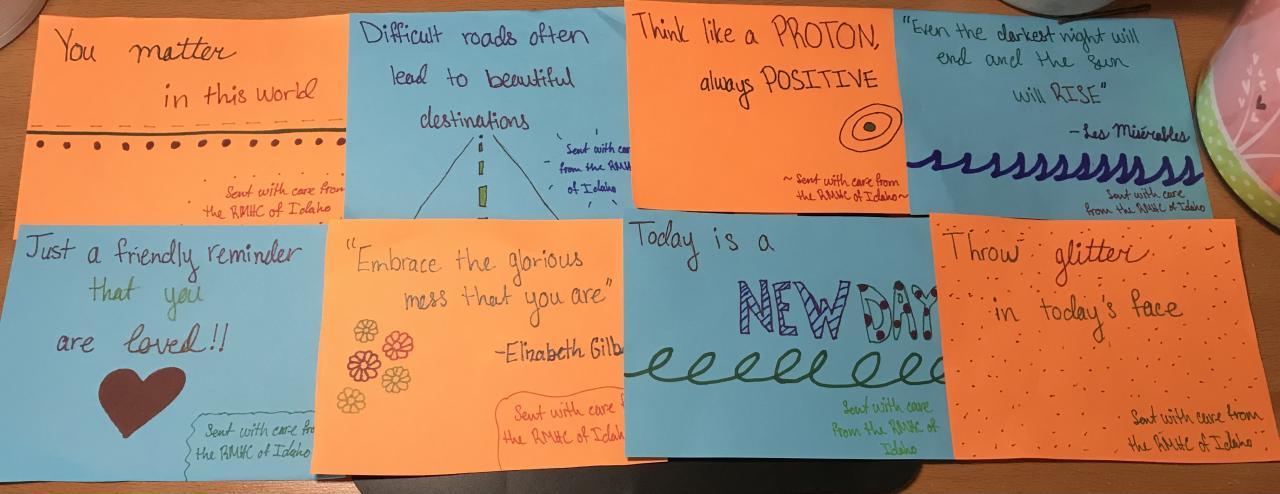 You matter
in this world
Sent with care from
the RMHC of Idaho
Difficult roads often
lead to beautiful
destinations
Sent with car
from the RMH
of Idaho
Think like a PROTON,
always POSITIVE
~ Sent with care from
the RMHC of Idaho~
"Even the darkest night will
end and the sun
will RISE"
-Les Misérables
Sent with care
from the RMHC of Idaho
Just a friendly reminder
that you
are loved!!
Sent with care fro
the RMHC of Idaho
"Embrace the glorious
mess that you are"
-Elizabeth Gilb
Sent with care f
the RMHC of Idah
Today is a
NEW DAY
Sent with care
from the RMHC of
Idaho
Throw glitter
in today's face
Sent with care from
the RMHC of Idaho